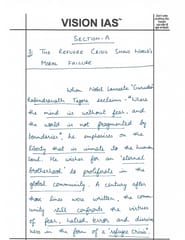 VISION IAS™
SECTION-A
3) THE REFUGEE CRISIS SHOWS WORLD'S
MORAL FAILURE
When Nobel Laureate
Rabindranath Tagore exclaims - "Where
the mind is without fear, and
the world is not fragmented by
boundaries", he emphasises on the
liberty that is innate to the human
land. He wishes for an 'eternal
brotherhood' to proliferate in the
global community. A century after
those lines were written, the
community still confronts the victims
of fear, hatred, error and
were in the form of a 'refugee crisis'.